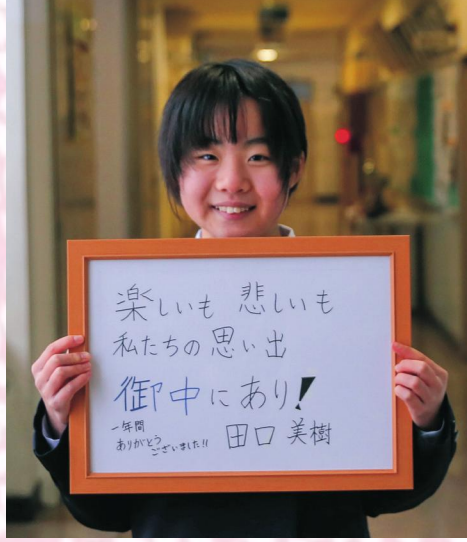 楽しいも 悲しいも
私たちの思い出
御中にあり!
一年間
ありがとう
ございました!!
田口 美樹